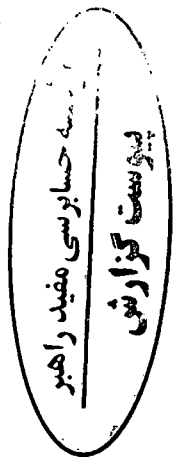 حسابرسی مفید راهبر
پیوست گزارش